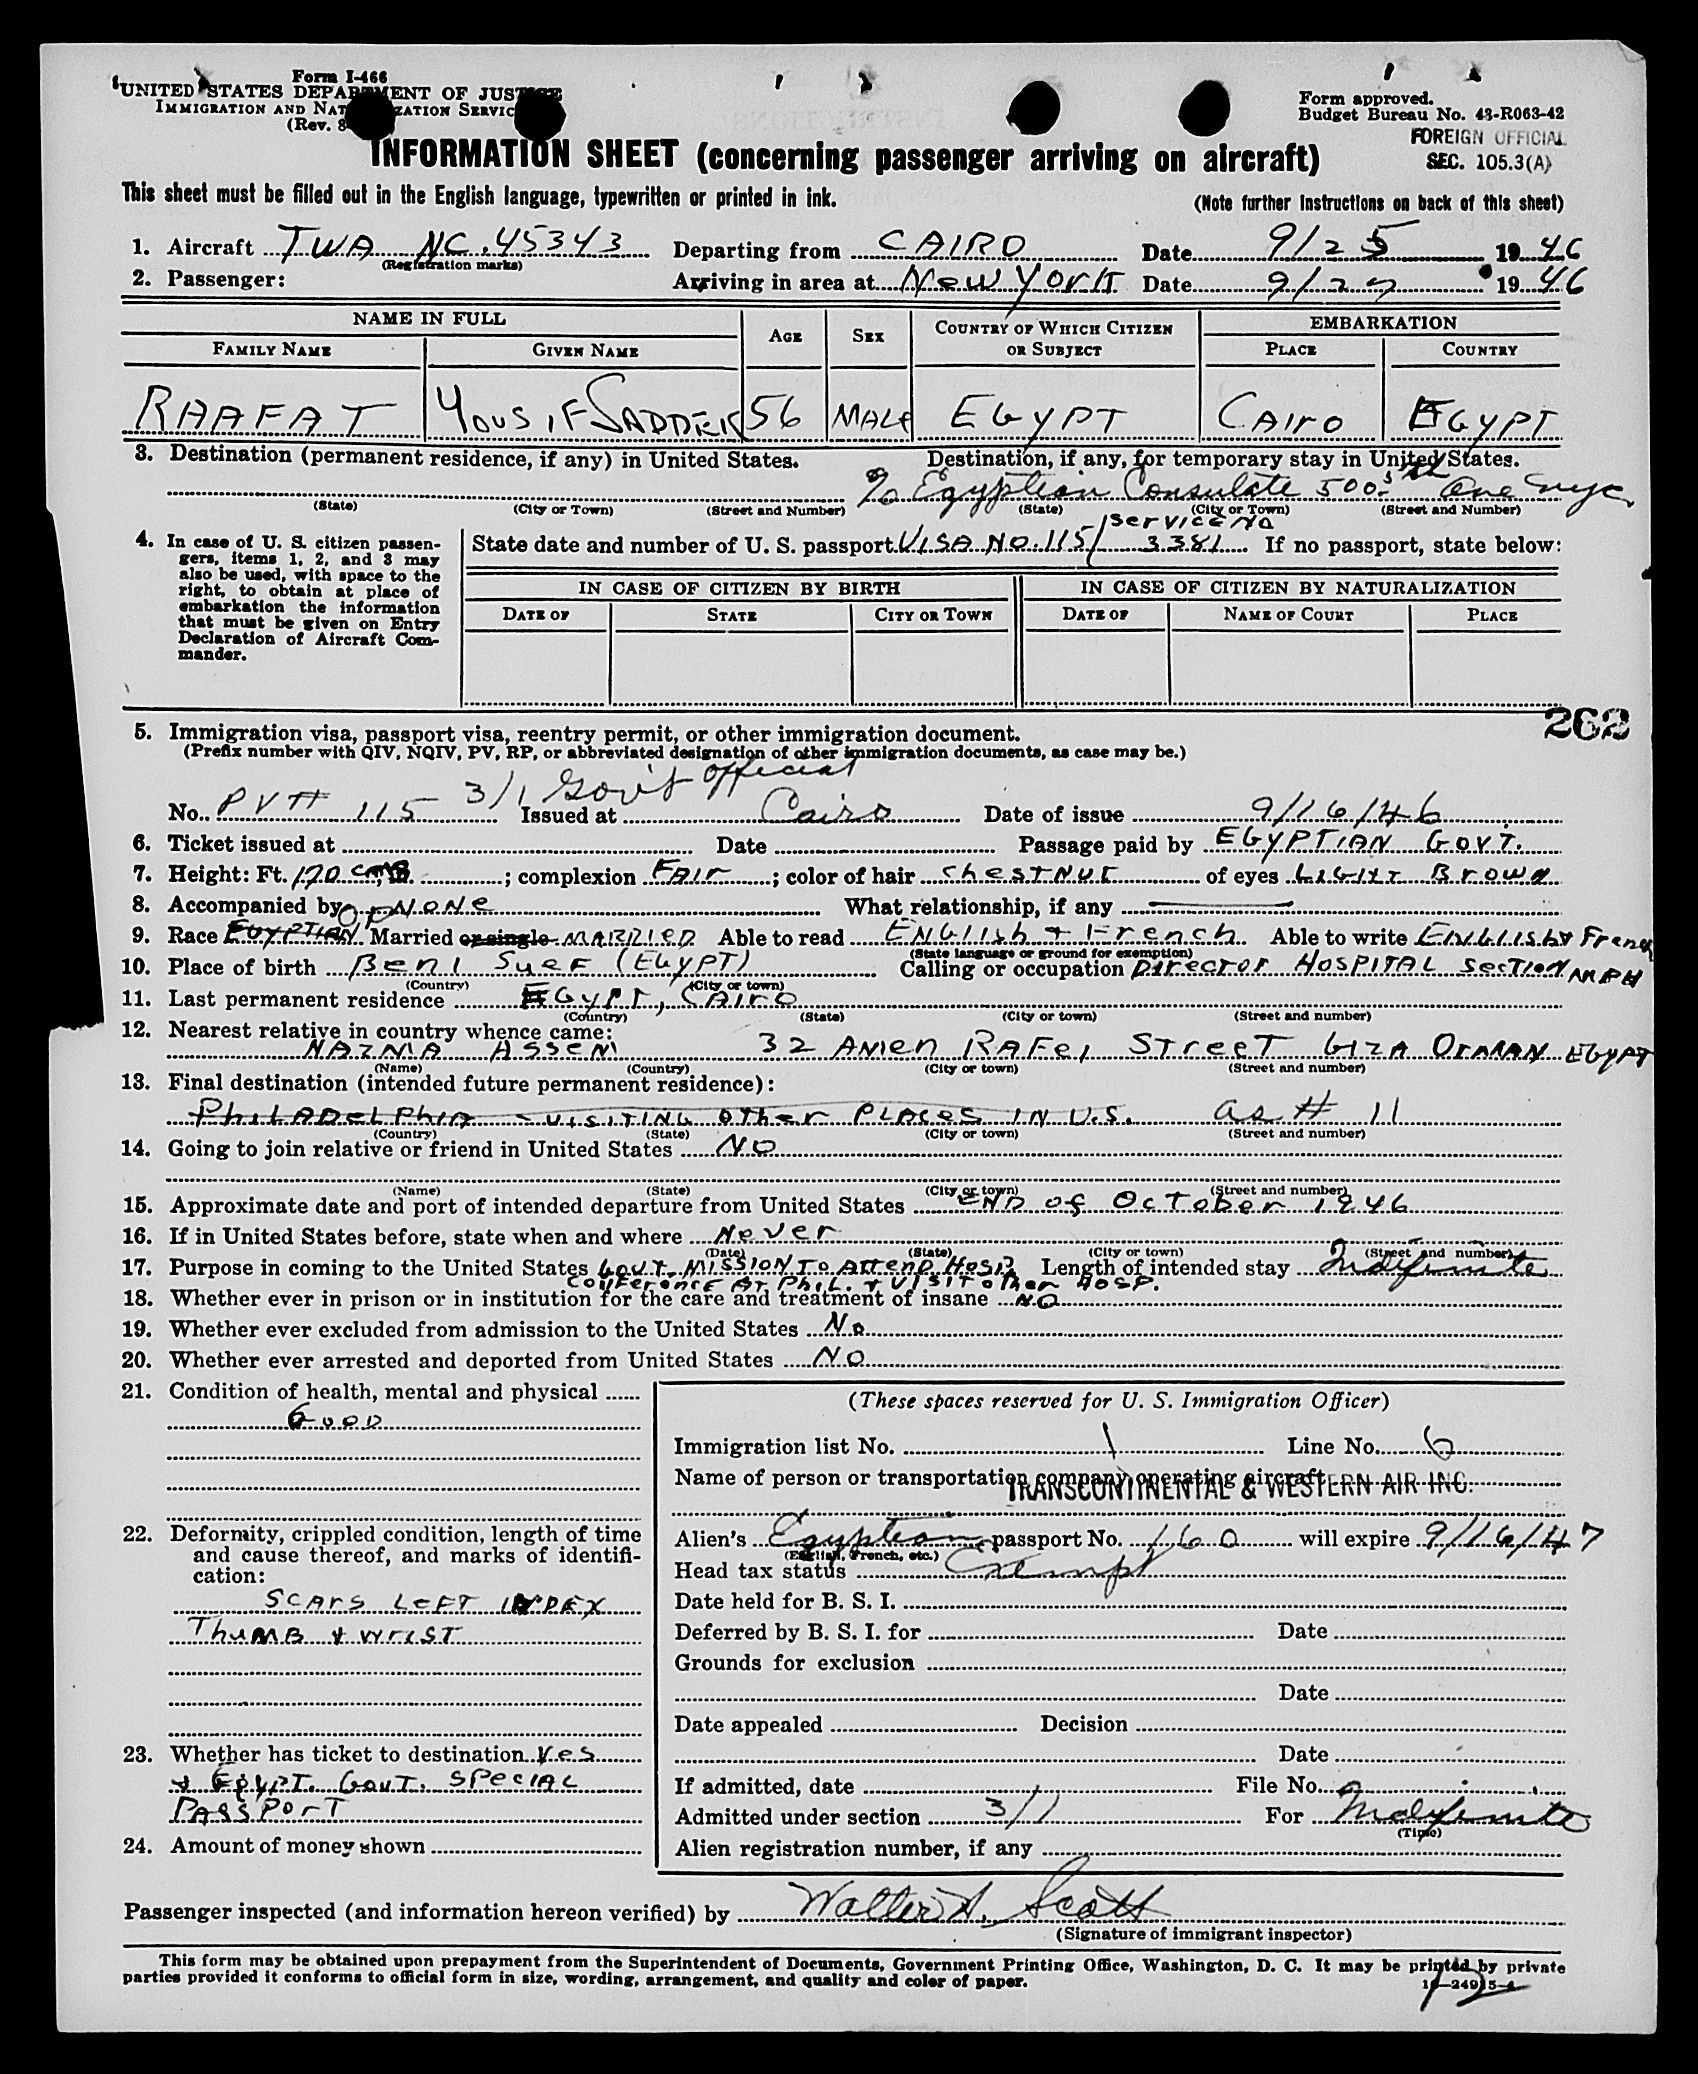 Form I-466
UNITED STATES DEPARTMENT OF JUSTICE
IMMIGRATION AND NATURALIZATION SERVICE
(Rev. 8
Form approved.
Budget Bureau No. 43-R063-42
FOREIGN OFFICIAL
SEC. 105.3(A)
INFORMATION SHEET (concerning passenger arriving on aircraft)
This sheet must be filled out in the English language, typewritten or printed in ink.
(Note further instructions on back of this sheet)
1. Aircraft TWA NC.45343 Departing from CAIRO Date 9/25 1946
(Registration marks)
2. Passenger: Arriving in area at New York Date 9/27 1946
NAME IN FULL AGE SEX COUNTRY OF WHICH CITIZEN OR SUBJECT EMBARKATION
FAMILY NAME GIVEN NAME PLACE COUNTRY
RAAFAT YOUSIF SADDEK 56 MALE EGYPT CAIRO EGYPT
3. Destination (permanent residence, if any) in United States. Destination, if any, for temporary stay in United States.
% Egyptian Consulate 500 5th Ave nyc
(State) (City or Town) (Street and Number) (State) (City or Town) (Street and Number)
4. In case of U. S. citizen passengers, items 1, 2, and 3 may
also be used, with space to the
right, to obtain at place of
embarkation the information
that must be given on Entry
Declaration of Aircraft Commander.
State date and number of U. S. passport VISA NO. 115/ service no 3381 If no passport, state below:
IN CASE OF CITIZEN BY BIRTH IN CASE OF CITIZEN BY NATURALIZATION
DATE OF STATE CITY OR TOWN DATE OF NAME OF COURT PLACE
262
5. Immigration visa, passport visa, reentry permit, or other immigration document.
(Prefix number with QIV, NQIV, PV, RP, or abbreviated designation of other immigration documents, as case may be.)
3/1 Gov't official
No. PV# 115 Issued at Cairo Date of issue 9/16/46
6. Ticket issued at Date Passage paid by EGYPTIAN GOVT.
7. Height: Ft. 170 cms ; complexion FAIR ; color of hair CHESTNUT of eyes LIGHT BROWN
8. Accompanied by NONE What relationship, if any
9. Race EGYPTIAN Married or single MARRIED Able to read ENGLISH + French Able to write ENGLISH + French
(State language or ground for exemption)
10. Place of birth Beni Suef (EGYPT) Calling or occupation Director HOSPITAL SECTION MPH
(Country) (City or town)
11. Last permanent residence EGYPT, CAIRO
(Country) (State) (City or town) (Street and number)
12. Nearest relative in country whence came:
NAZMA ASSEM 32 AMEN RAFEI STREET GIZA ORMAN EGYPT
(Name) (Country) (City or town) (Street and number)
13. Final destination (intended future permanent residence):
PHILADELPHIA - VISITING OTHER PLACES IN U.S. as # 11
(Country) (State) (City or town) (Street and number)
14. Going to join relative or friend in United States NO
(Name) (State) (City or town) (Street and number)
15. Approximate date and port of intended departure from United States END of OCTOBER 1946
16. If in United States before, state when and where Never
(Date) (State) (City or town) (Street and number)
17. Purpose in coming to the United States GOVT. MISSION TO ATTEND HOSP. Length of intended stay Indefinite
CONFERENCE AT PHIL. + VISIT OTHER HOSP.
18. Whether ever in prison or in institution for the care and treatment of insane NO
19. Whether ever excluded from admission to the United States No
20. Whether ever arrested and deported from United States NO
21. Condition of health, mental and physical
GOOD
22. Deformity, crippled condition, length of time
and cause thereof, and marks of identification:
SCARS LEFT INDEX
THUMB + WRIST
23. Whether has ticket to destination Yes
+ EGYPT. GOVT. SPECIAL
PASSPORT
24. Amount of money shown
(These spaces reserved for U. S. Immigration Officer)
Immigration list No. 1 Line No. 6
Name of person or transportation company operating aircraft
TRANSCONTINENTAL & WESTERN AIR INC.
Alien's Egyptian passport No. 160 will expire 9/16/47
(English, French, etc.)
Head tax status Exempt
Date held for B. S. I.
Deferred by B. S. I. for Date
Grounds for exclusion
Date
Date appealed Decision
Date
If admitted, date File No.
Admitted under section 3/1 For Indefinite
(Time)
Alien registration number, if any
Passenger inspected (and information hereon verified) by Walter A. Scott
(Signature of immigrant inspector)
This form may be obtained upon prepayment from the Superintendent of Documents, Government Printing Office, Washington, D. C. It may be printed by private
parties provided it conforms to official form in size, wording, arrangement, and quality and color of paper.